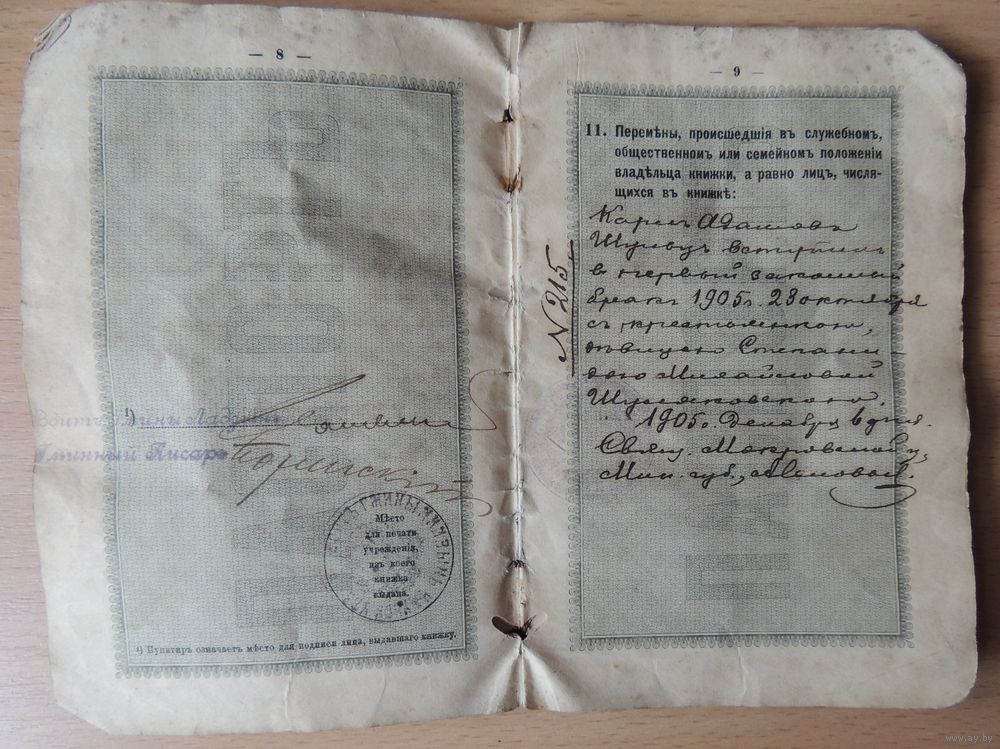 — 8 —
1)
Войтъ Гмины
Гминный Писарь
Мѣсто
для печати
учрежденія,
изъ коего
книжка
выдана.
1) Пунктиръ означаетъ мѣсто для подписи лица, выдавшаго книжку.
— 9 —
11. Перемѣны, происшедшія въ служебномъ,
общественномъ или семейномъ положеніи
владѣльца книжки, а равно лицъ, числя-
щихся въ книжкѣ:
№ 215
Карлъ Адамовъ
Шульцъ вступилъ
в первый законный
бракъ 1905 г. 23 октября
съ крестьянкою,
дѣвицею Степани-
дою Михайловой
1905 г. Декабря 6 дня.
Свящ. Покровской ц.
Мин. губ.,
www.ay.by